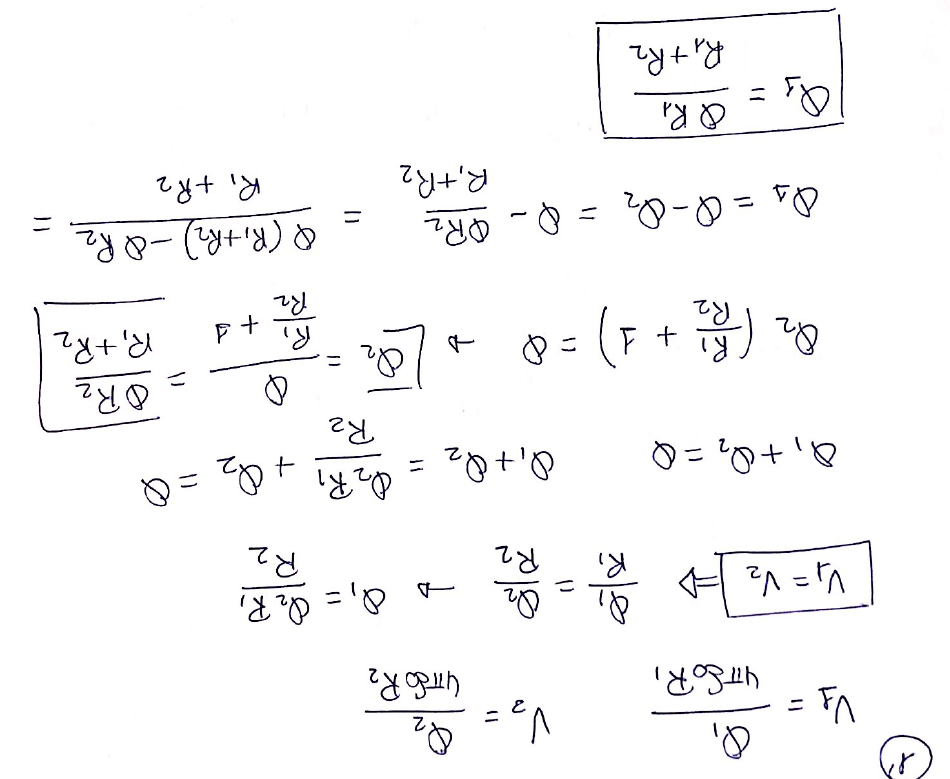 1,
V₁ = Q₁/(4πε₀R₁)   V₂ = Q₂/(4πε₀R₂)
V₁ = V₂ ⇒ Q₁/R₁ = Q₂/R₂ → Q₁ = Q₂R₁/R₂
Q₁ + Q₂ = Q   Q₁ + Q₂ = Q₂R₁/R₂ + Q₂ = Q
Q₂ (R₁/R₂ + 1) = Q → Q₂ = Q/(R₁/R₂ + 1) = QR₂/(R₁ + R₂)
Q₁ = Q - Q₂ = Q - QR₂/(R₁ + R₂) = (Q(R₁ + R₂) - QR₂)/(R₁ + R₂) =
Q₁ = QR₁/(R₁ + R₂)